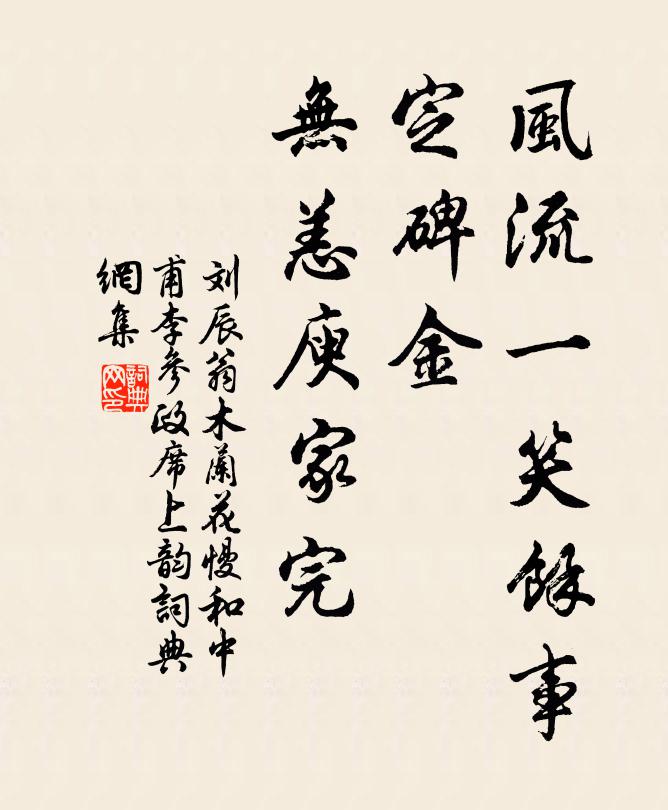 風流一笑餘事
定碑金
無恙庾家完
刘辰翁木蘭花慢和中
甫李參政席上韵詞典
網集
詞典
网印